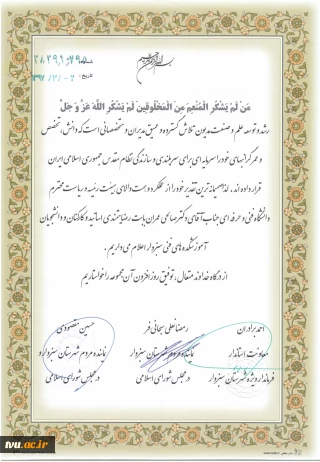 بسم الله الرحمن الرحیم
شماره
تاریخ
مَن لَم یَشکُرِ المُنعِمَ مِنَ المَخلوقینَ لَم یَشکُرِ اللهَ عَزَّ وَ جَلَّ
رشد و توسعه علم و صنعت مدیون تلاش گسترده و عمیق مدیران و متخصصانی است که دانش، تخصص
و عمر گرانبهای خود را سرمایه ای برای سربلندی و سازندگی نظام مقدس جمهوری اسلامی ایران
قرار داده اند، لذا صمیمانه ترین تقدیر خود را از عملکرد و همت والای هیئت رئیسه و ریاست محترم
دانشگاه فنی و حرفه ای جناب آقای دکتر صالحی عمران بابت رضایتمندی اساتید و کارکنان و دانشجویان
آموزشکده های فنی سبزوار اعلام می داریم.
از درگاه خداوند متعال، توفیق روزافزون آن مجموعه را خواستاریم
احمد برادران
معاونت استاندار
فرماندار ویژه شهرستان سبزوار
رمضانعلی سبحانی فر
نماینده مردم شهرستان سبزوار
در مجلس شورای اسلامی
حسین مقصودی
نماینده مردم شهرستان سبزوار
در مجلس شورای اسلامی
tvu.ac.ir